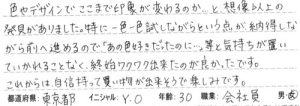 色やデザインでここまで印象が変わるのか…と、想像以上の
発見がありました。特に一色一色試しながらという点が、納得しな
がら前へ進めるので"あの色好きだったのに…"等と気持ちが置い
ていかれることなく、終始ワクワク出来たのが良かったです。
これからは、自信持って買い物が出来そうで楽しみです。
都道府県：東京都 イニシャル：Y.O 年齢：30 職業：会社員 男・女